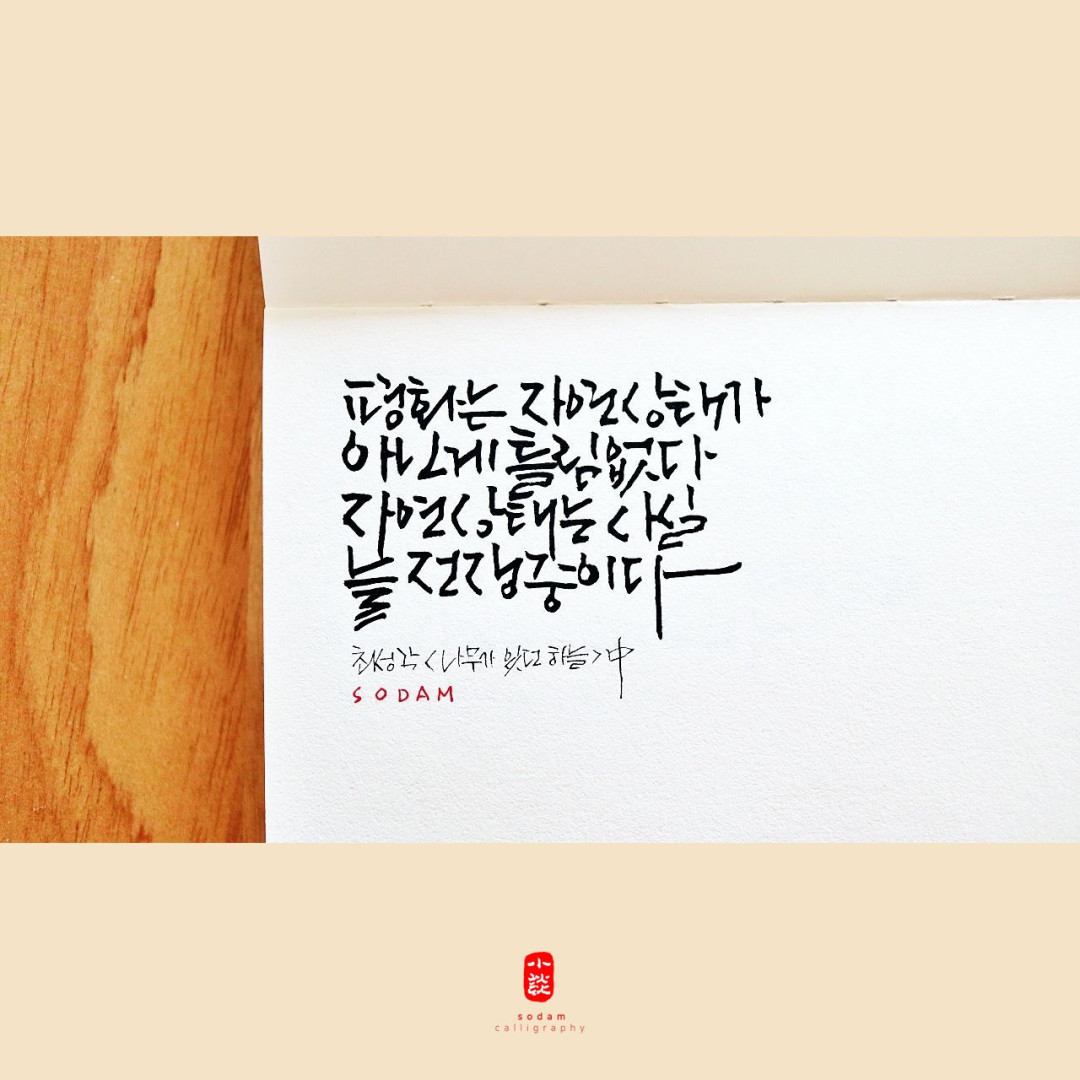 평화는 자연상태가
아닌게 틀림없다
자연상태는 사실
늘 전쟁중이다
최성각 <나무가 있던 하늘>中
SODAM
小談
sodam
calligraphy